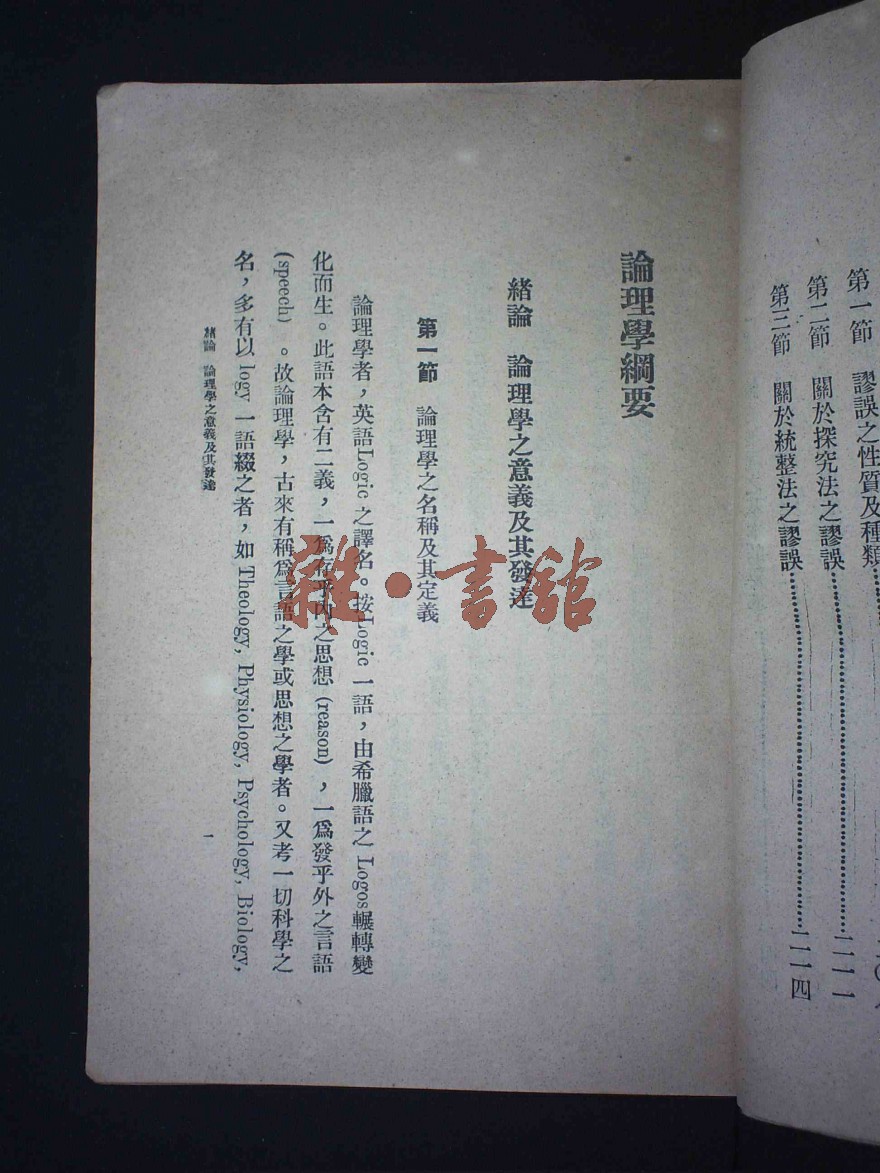 第一節　謬誤之性質及種類
第二節　關於探究法之謬誤……二一一
第三節　關於統整法之謬誤……二一四
論理學綱要
緒論　論理學之意義及其發達
第一節　論理學之名稱及其定義
論理學者，英語Logic之譯名。按Logic一語，由希臘語之Logos輾轉變
化而生。此語本含有二義，一爲存乎內之思想(reason)，一爲發乎外之言語
(speech)。故論理學，古來有稱爲言語之學或思想之學者。又考一切科學之
名，多有以logy一語綴之者，如Theology, Physiology, Psychology, Biology,
緒論　論理學之意義及其發達　一
雜·書館